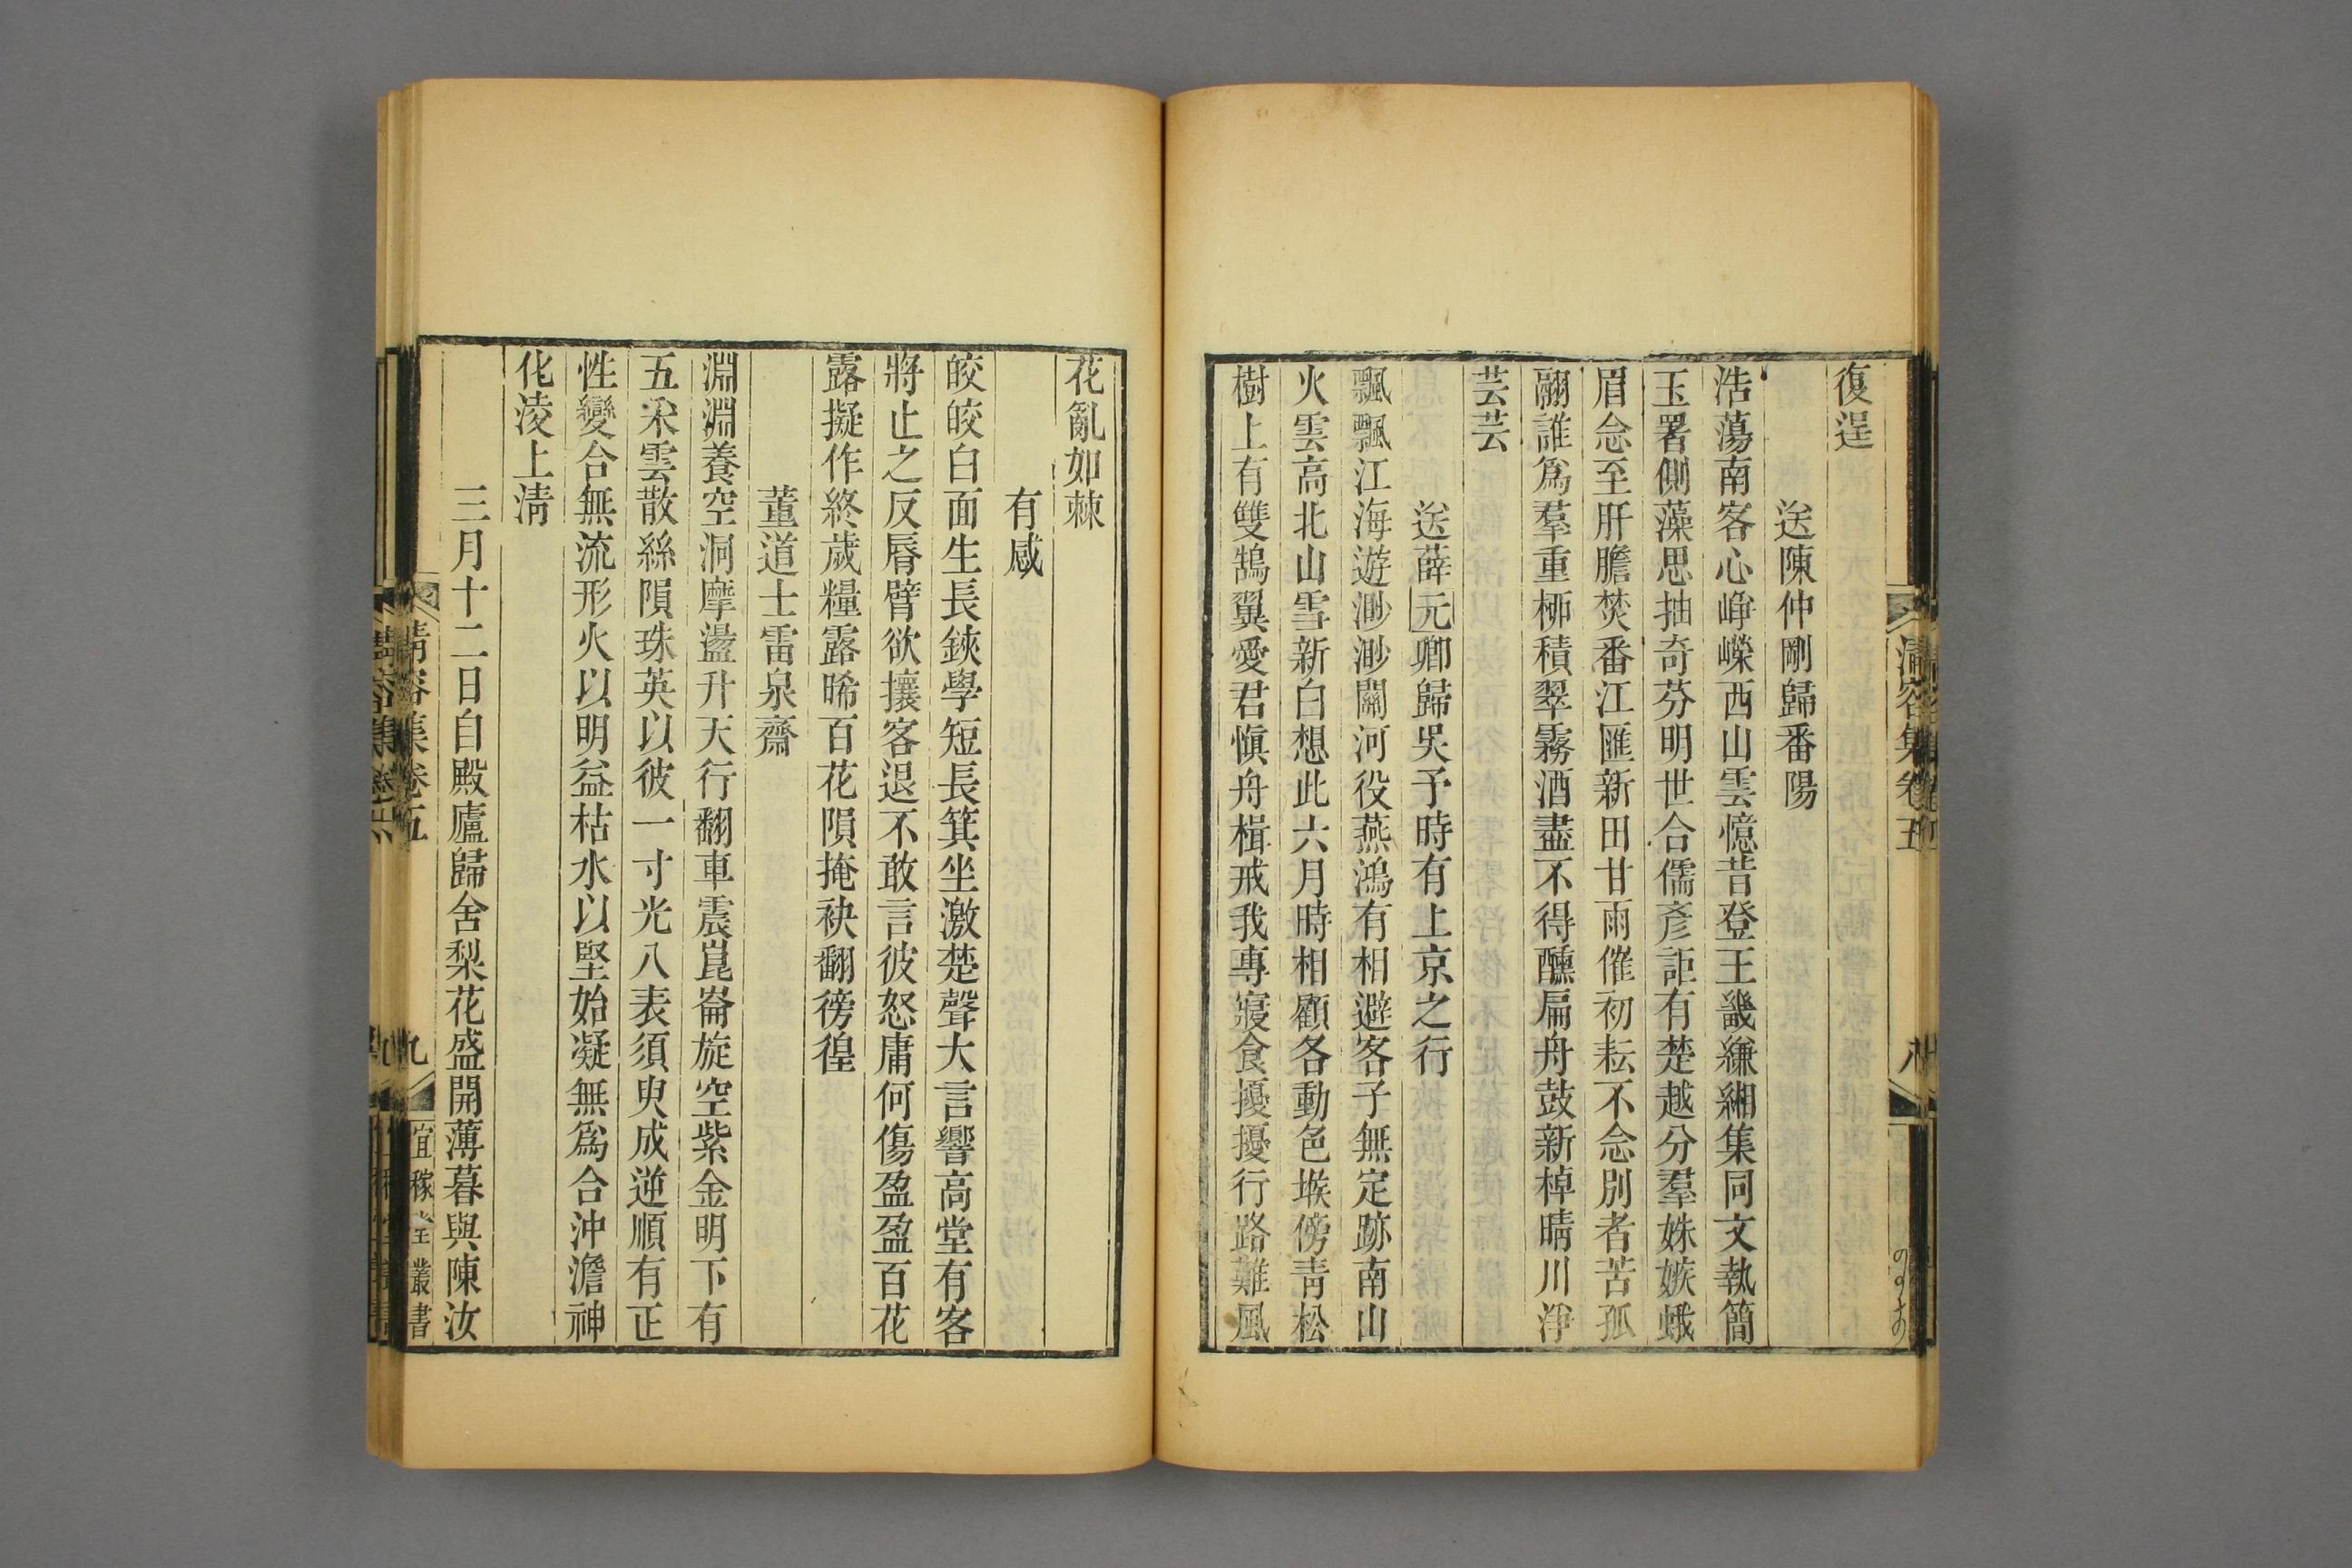 復逞
送陳仲剛歸番陽
浩蕩南客心崢嶸西山雲憶昔登王畿縑緗集同文執簡
玉署側藻思抽奇芬明世合儒彥詎有楚越分羣姝嫉蛾
眉念至肝膽焚番江匯新田甘雨催初耘不念別者苦孤
翮誰爲羣重桺積翠霧酒盡不得醺扁舟鼓新棹晴川淨
芸芸
送薛元卿歸吳予時有上京之行
飄飄江海遊渺渺關河役燕鴻有相避客子無定跡南山
火雲高北山雪新白想此六月時相顧各動色堠傍靑松
樹上有雙鵠翼愛君愼舟楫戒我專寢食擾擾行路難風
清容集卷五
八
花亂如棘
有感
皎皎白面生長鋏學短長箕坐激楚聲大言響高堂有客
將止之反脣臂欲攘客退不敢言彼怒庸何傷盈盈百花
露擬作終歲糧露晞百花隕掩袂翻徬徨
董道士雷泉齋
淵淵養空洞摩盪升天行翻車震崑崙旋空紫金明下有
五采雲散絲隕珠英以彼一寸光八表須臾成逆順有正
性變合無流形火以明益枯水以堅始凝無爲合沖澹神
化凌上淸
三月十二日自殿廬歸舍梨花盛開薄暮與陳汝
清容集卷五
九
宜稼堂叢書